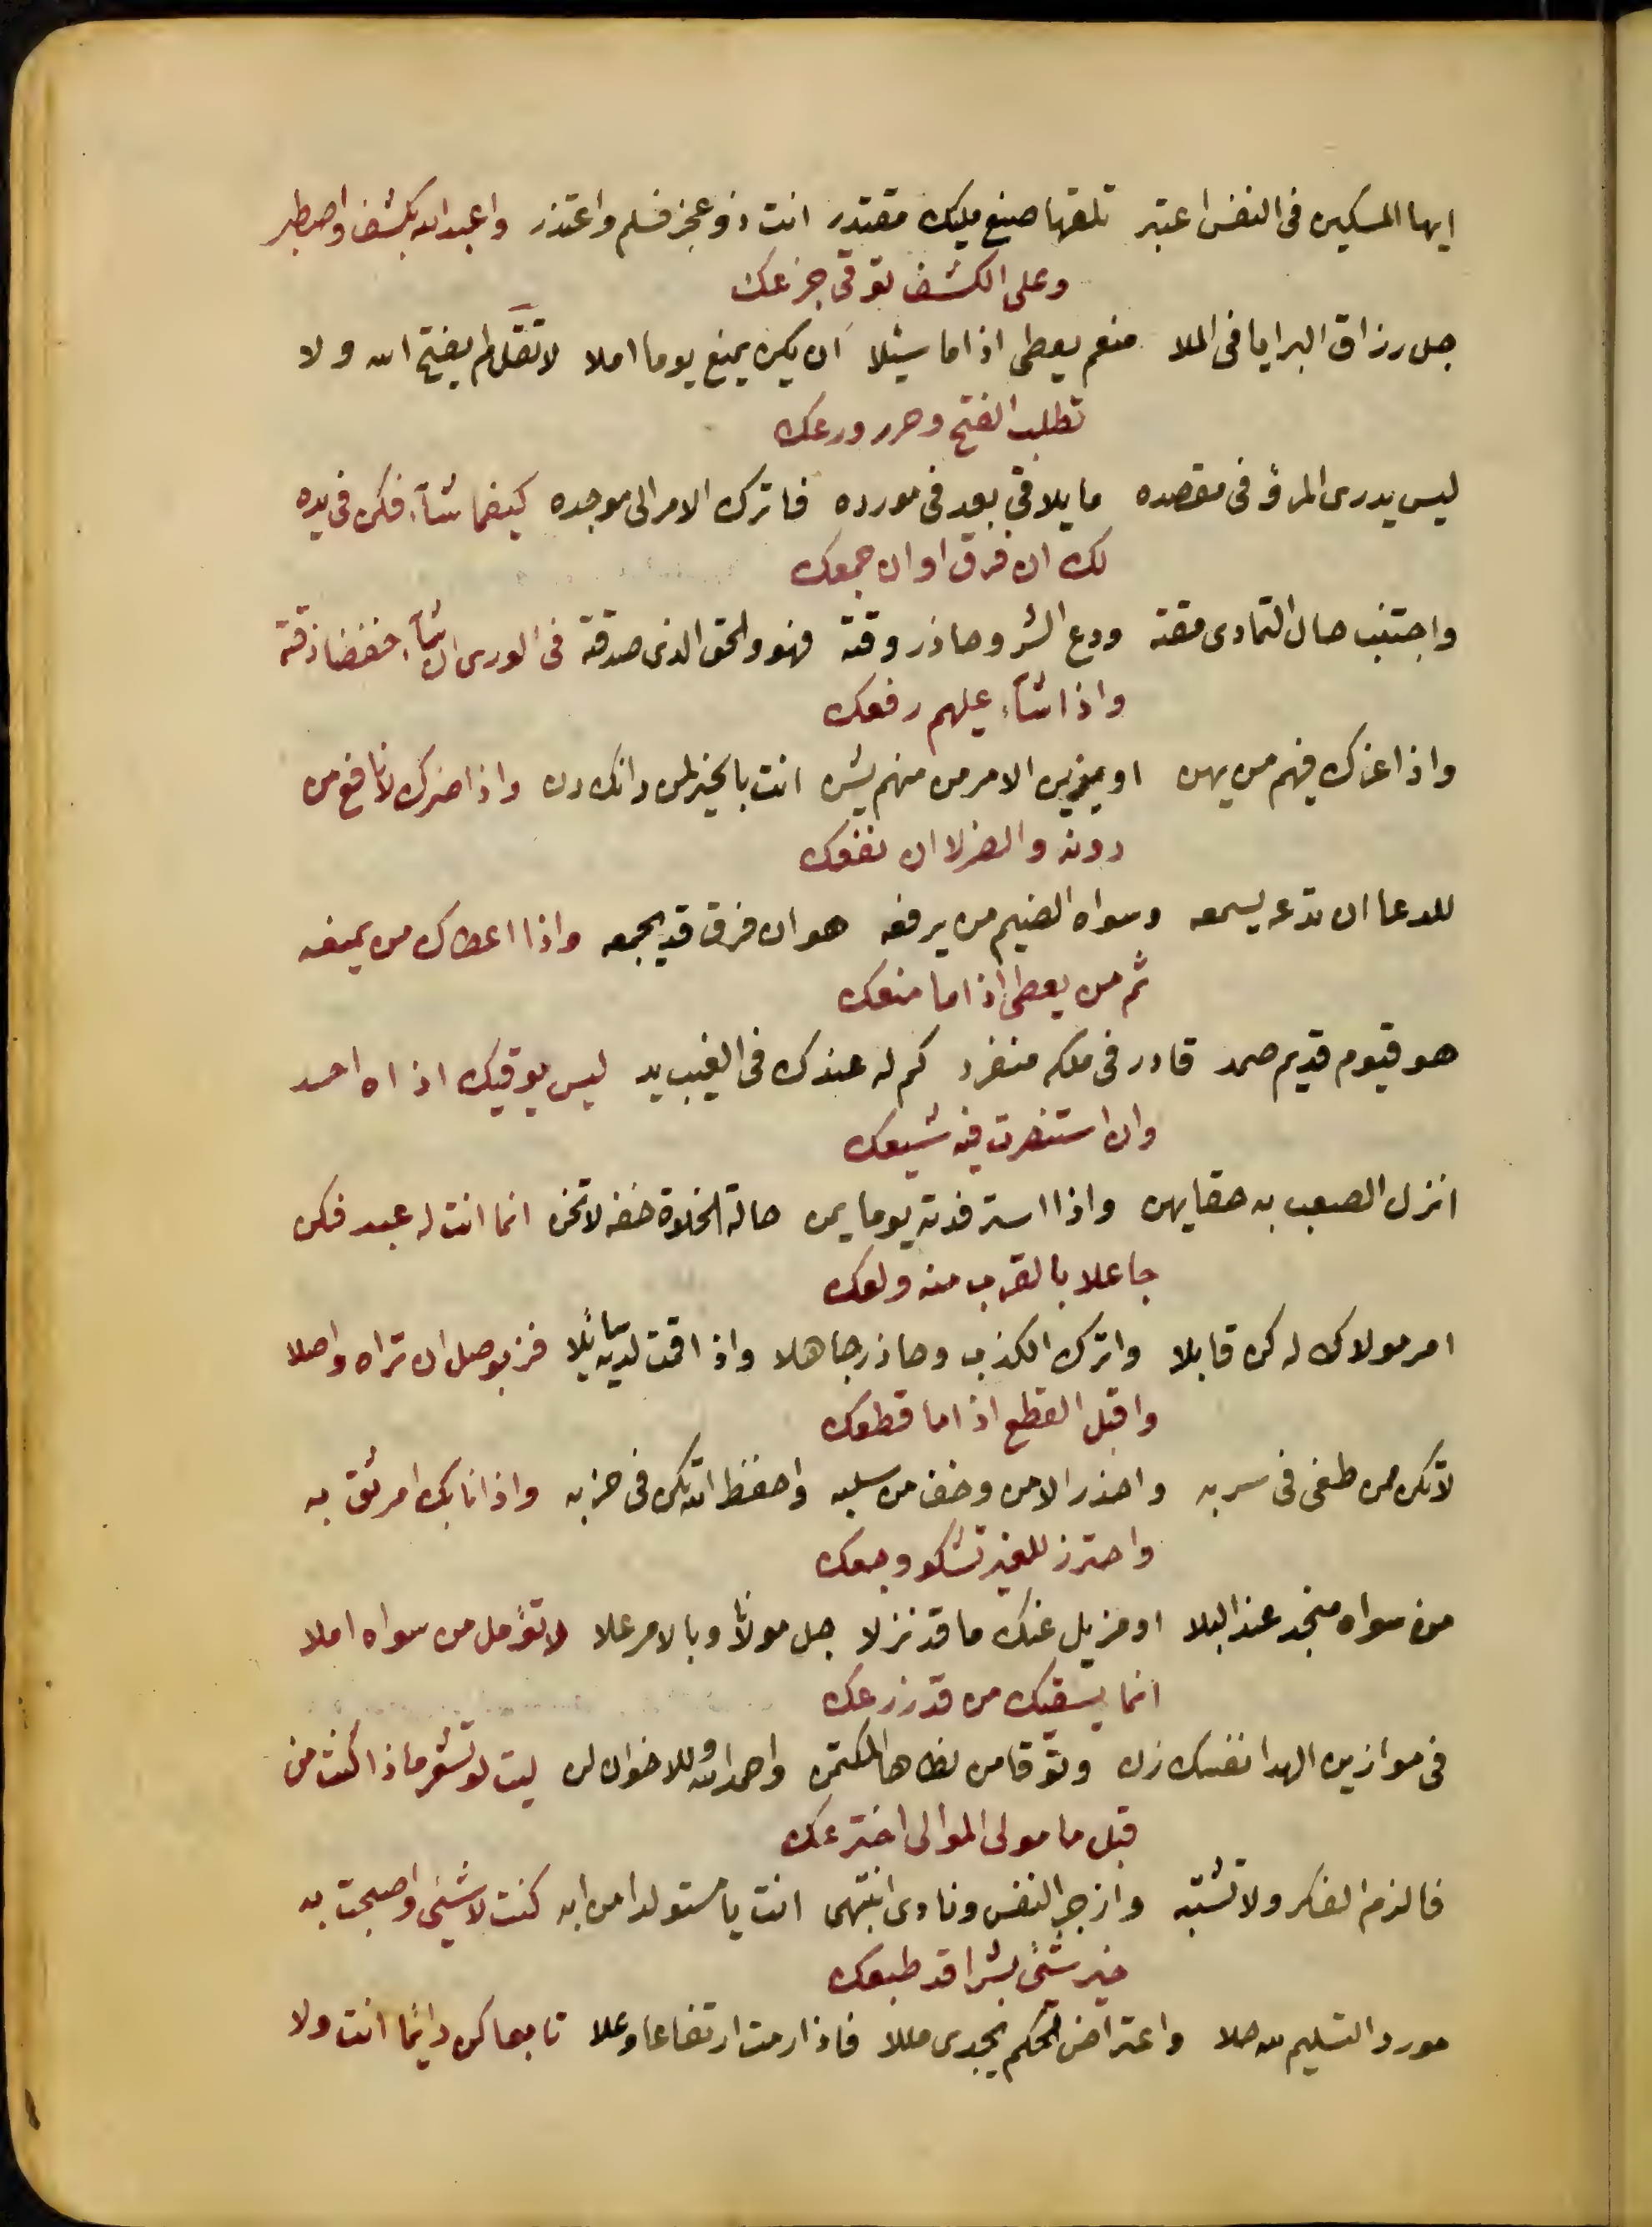 ايها المسكين فى النفس اعتبر تلقها صنع مليك مقتدر انت ذو عجز فسلم واعتذر واعبد الله بكشف واصطبر
وعلى الكشف توقى جزعك
جل رزاق البرايا فى الملا منعم يعطى اذا ما سيئلا ان يكن يمنع يوما املا لا تقل لم يفتح الله ولا
تطلب الفتح وحرر ورعك
ليس يدرى المرؤ فى مقصده ما يلاقى بعد فى مورده فاترك الامر الى موجده كيفما شآء فكن فى يده
لك ان فرق او ان جمعك
واجتنب حال التمادى مقته ودع الشر وحاذر وقته فهو والحق الذى صدقته فى الورى ان شآء خفضا ذقته
واذا شآء عليهم رفعك
واذا عزك فيهم من يهن او يزين الامر من منهم يشن انت بالخير لمن دانك دن واذا ضرك لا نافع من
دونه والضر لا ان نفعك
للدعا ان تدعه يسمعه وسواه الضيم من يرفعه هو ان فرق قد يجمعه واذا اعطاك من يمنعه
ثم من يعطى اذا ما منعك
هو قيوم قديم صمد قادر فى ملكه منفرد كم له عندك فى الغيب يد ليس يوقيك اذاه احد
وان استنصرت فيه شيعك
انزل الصعب به حقا يهن واذا استرفدته يوما يمن حالة الخلاة خفه لا تخن انما انت له عبد فكن
جاعلا بالقرب منه ولعك
امر مولاك له كن قابلا واترك الكذب وحاذر جاهلا واذا قمت لديه سائيلا فز بوصل ان تراه واصلا
واقبل القطع اذا ما قطعك
لا تكن ممن طغى فى سربه واحذر الامن وخف من سلبه واحفظ الله تكن فى حزبه واذا نابك امر ثق به
واحترز للغير تشكو وجعك
من سواه منجد عند البلا او مزيل عنك ما قد نزلا جل مولا وبالامر علا لا تؤمل من سواه املا
انما يسقيك من قد زرعك
فى موازين الهدا نفسك زن وتوقا من لظاها المكتمن واحمد الله وللاخوان لن ليت لو تشعر ماذا كنت من
قبل ما مولى الموالى اخترعك
فالزم الفكر ولا تشتبه وازجر النفس ونادى انتهى انت يا مستولدا من ابه كنت لا شيئى واصبحت به
خير شيئ بشرا قد طبعك
مورد التسليم لله حلا واعتراض الحكم يجدى مللا فاذا رمت ارتفاعا وعلا تابعا كن دايما انت ولا